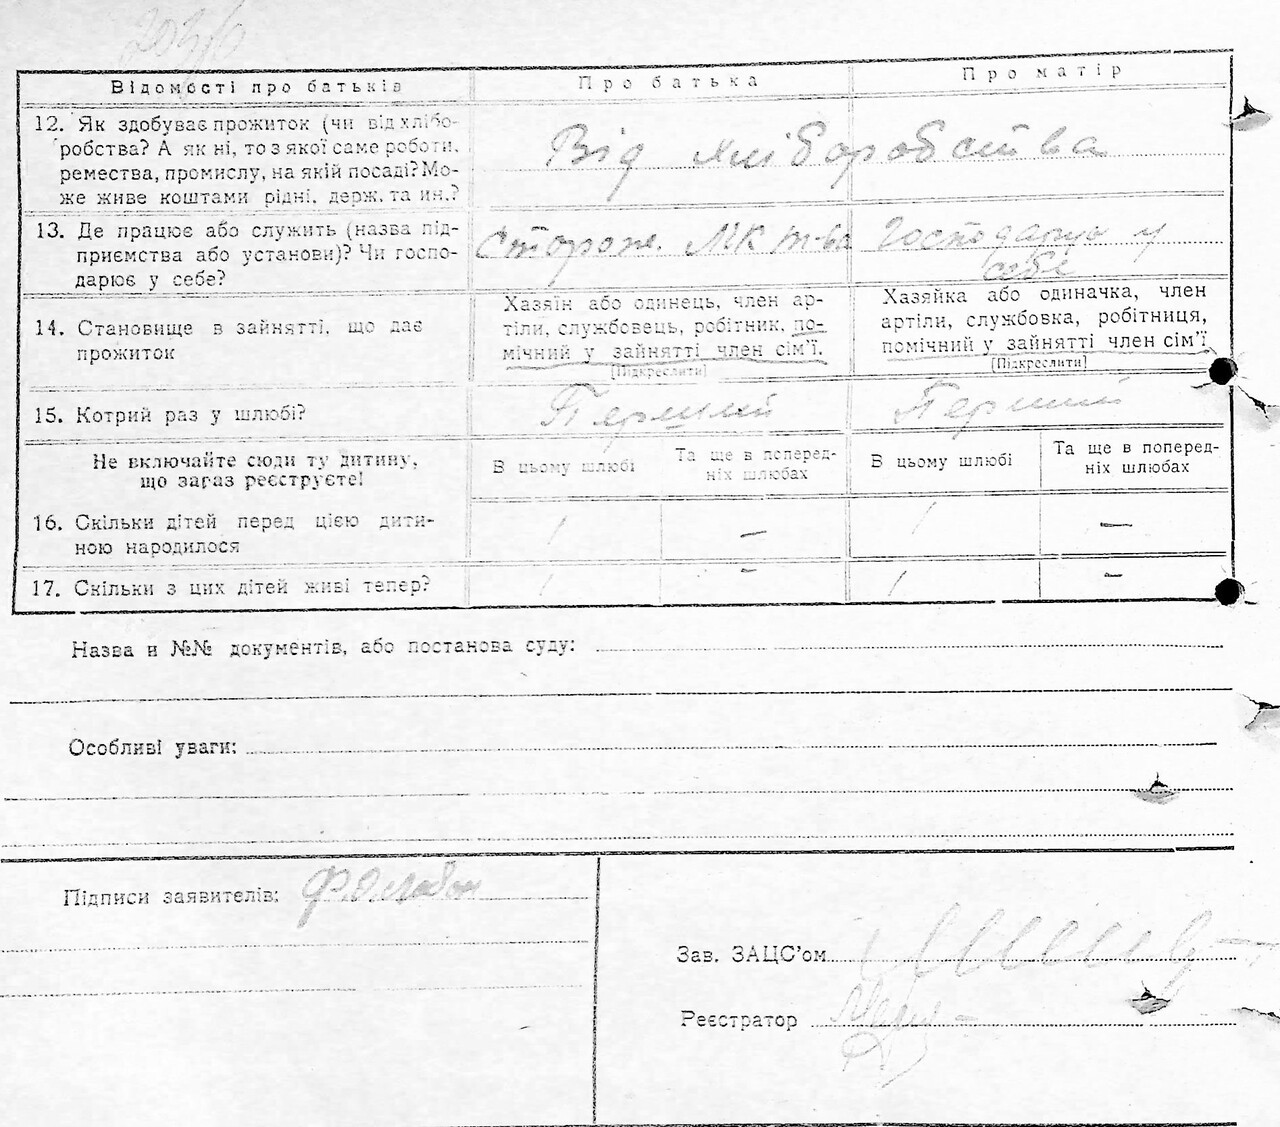 Відомості про батьків Про батька Про матір
12. Як здобуває прожиток (чи від хлібо-
робства? А як ні, то з якої саме роботи,
ремества, промислу, на якій посаді? Мо-
же живе коштами рідні, держ. та ин.?
Від хліборобства
13. Де працює або служить (назва під-
приємства або установи)? Чи госпо-
дарює у себе?
Сторож. МК т-ва
Господарює у
себе
14. Становище в зайнятті, що дає
прожиток
Хазяїн або одинець, член ар-
тіли, службовець, робітник, по-
мічний у зайнятті член сім'ї.
[Підкреслити]
Хазяйка або одиначка, член
артіли, службовка, робітниця,
помічний у зайнятті член сім'ї
[Підкреслити]
15. Котрий раз у шлюбі? Перший Перший
Не включайте сюди ту дитину,
що зараз реєструєте!
В цьому шлюбі
Та ще в поперед-
ніх шлюбах
В цьому шлюбі
Та ще в поперед-
ніх шлюбах
16. Скільки дітей перед цією дити-
ною народилося
1 — 1 —
17. Скільки з цих дітей живі тепер? 1 — 1 —
Назва и №№ документів, або постанова суду:
Особливі уваги:
Підписи заявителів:
Зав. ЗАЦС'ом
Реєстратор